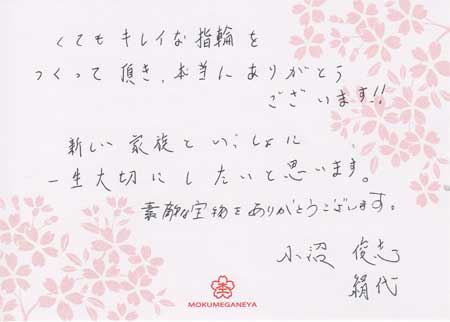 とてもキレイな指輪を
つくって頂き、本当にありがとう
ございます!!
新しい家族といっしょに
一生大切にしたいと思います。
素敵な宝物をありがとうございます。
小沼 俊志
絹代
MOKUMEGANEYA